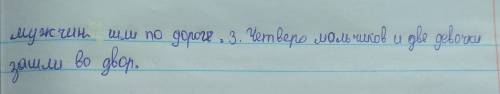 мужчин шли по дороге. 3. Четверо мальчиков и две девочки
зашли во двор.